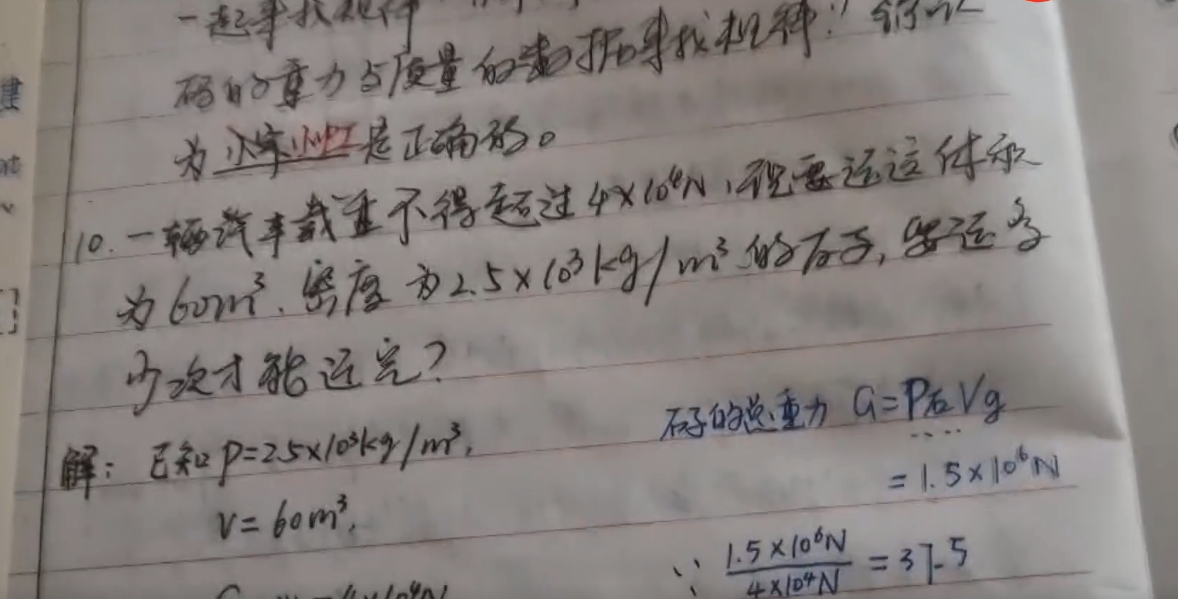 一起来找规律
码的重力与质量的数据来找规律!
为 小宇 是正确的。
10. 一辆汽车载重不得超过4×10⁴N,现要运送体积
为60m³、密度为2.5×10³kg/m³的石子,需运多
少次才能运完?
解: 已知 ρ=2.5×10³kg/m³,
V=60m³,
石子的总重力 G=ρ石Vg
=1.5×10⁶N
∵ 1.5×10⁶N / 4×10⁴N = 37.5